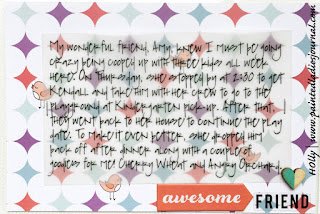 My wonderful friend, Amy, knew I must be going
crazy being cooped up with three kids all week
here. On Thursday, she stopped by at 2:30 to get
Kendall and take him with her crew to go to the
playground at kindergarten pick up. After that
they went back to her house to continue the play
date. To make it even better, she dropped him
back off after dinner along with a couple of
goodies for me! Cherry Wheat and Angry Orchard.
awesome
FRIEND
Holly | www.paintedladiesjournal.com